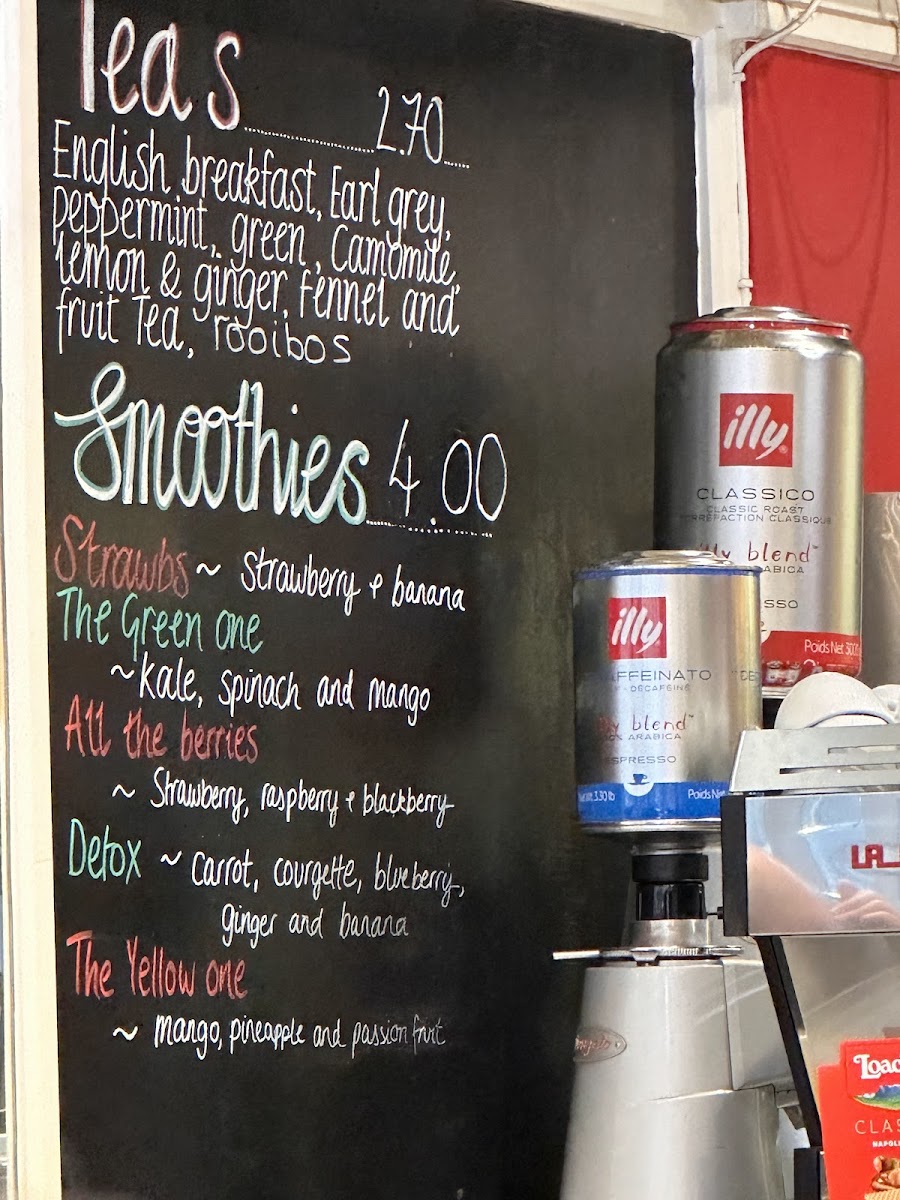 Teas 2.70
English breakfast, Earl grey,
Peppermint, green, Camomile,
lemon & ginger, fennel and
fruit Tea, rooibos
Smoothies 4.00
Strawbs ~ Strawberry + banana
The Green one
~ Kale, spinach and mango
All the berries
~ Strawberry, raspberry + blackberry
Detox ~ Carrot, courgette, blueberry,
ginger and banana
The Yellow one
~ mango, pineapple and passion fruit
illy
CLASSICO
CLASSIC ROAST
TORRÉFACTION CLASSIQUE
illy blend
Poids Net
illy
illy blend
100% ARABICA
ESPRESSO
3.30 lb Poids Net
LA